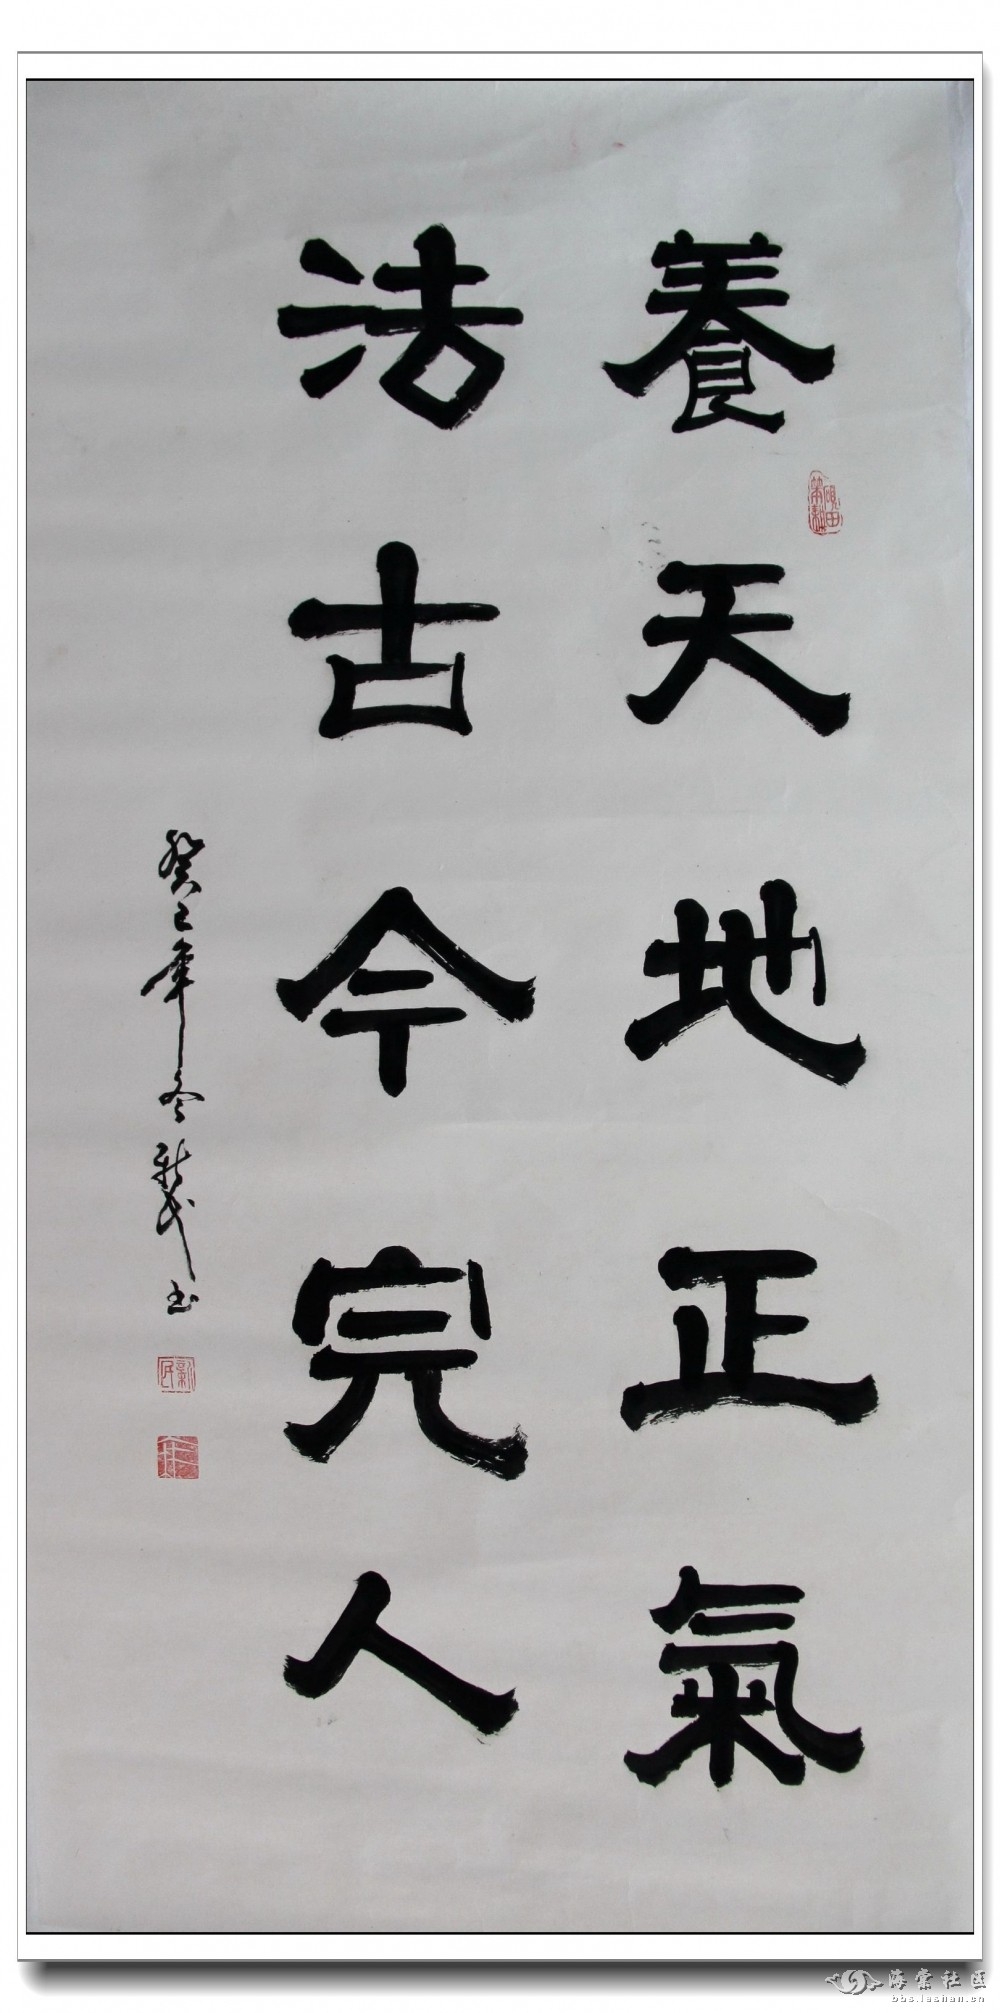 養天地正氣
法古今完人
癸巳年冬新民书
新民
海棠社区
bbs.lashan.cn